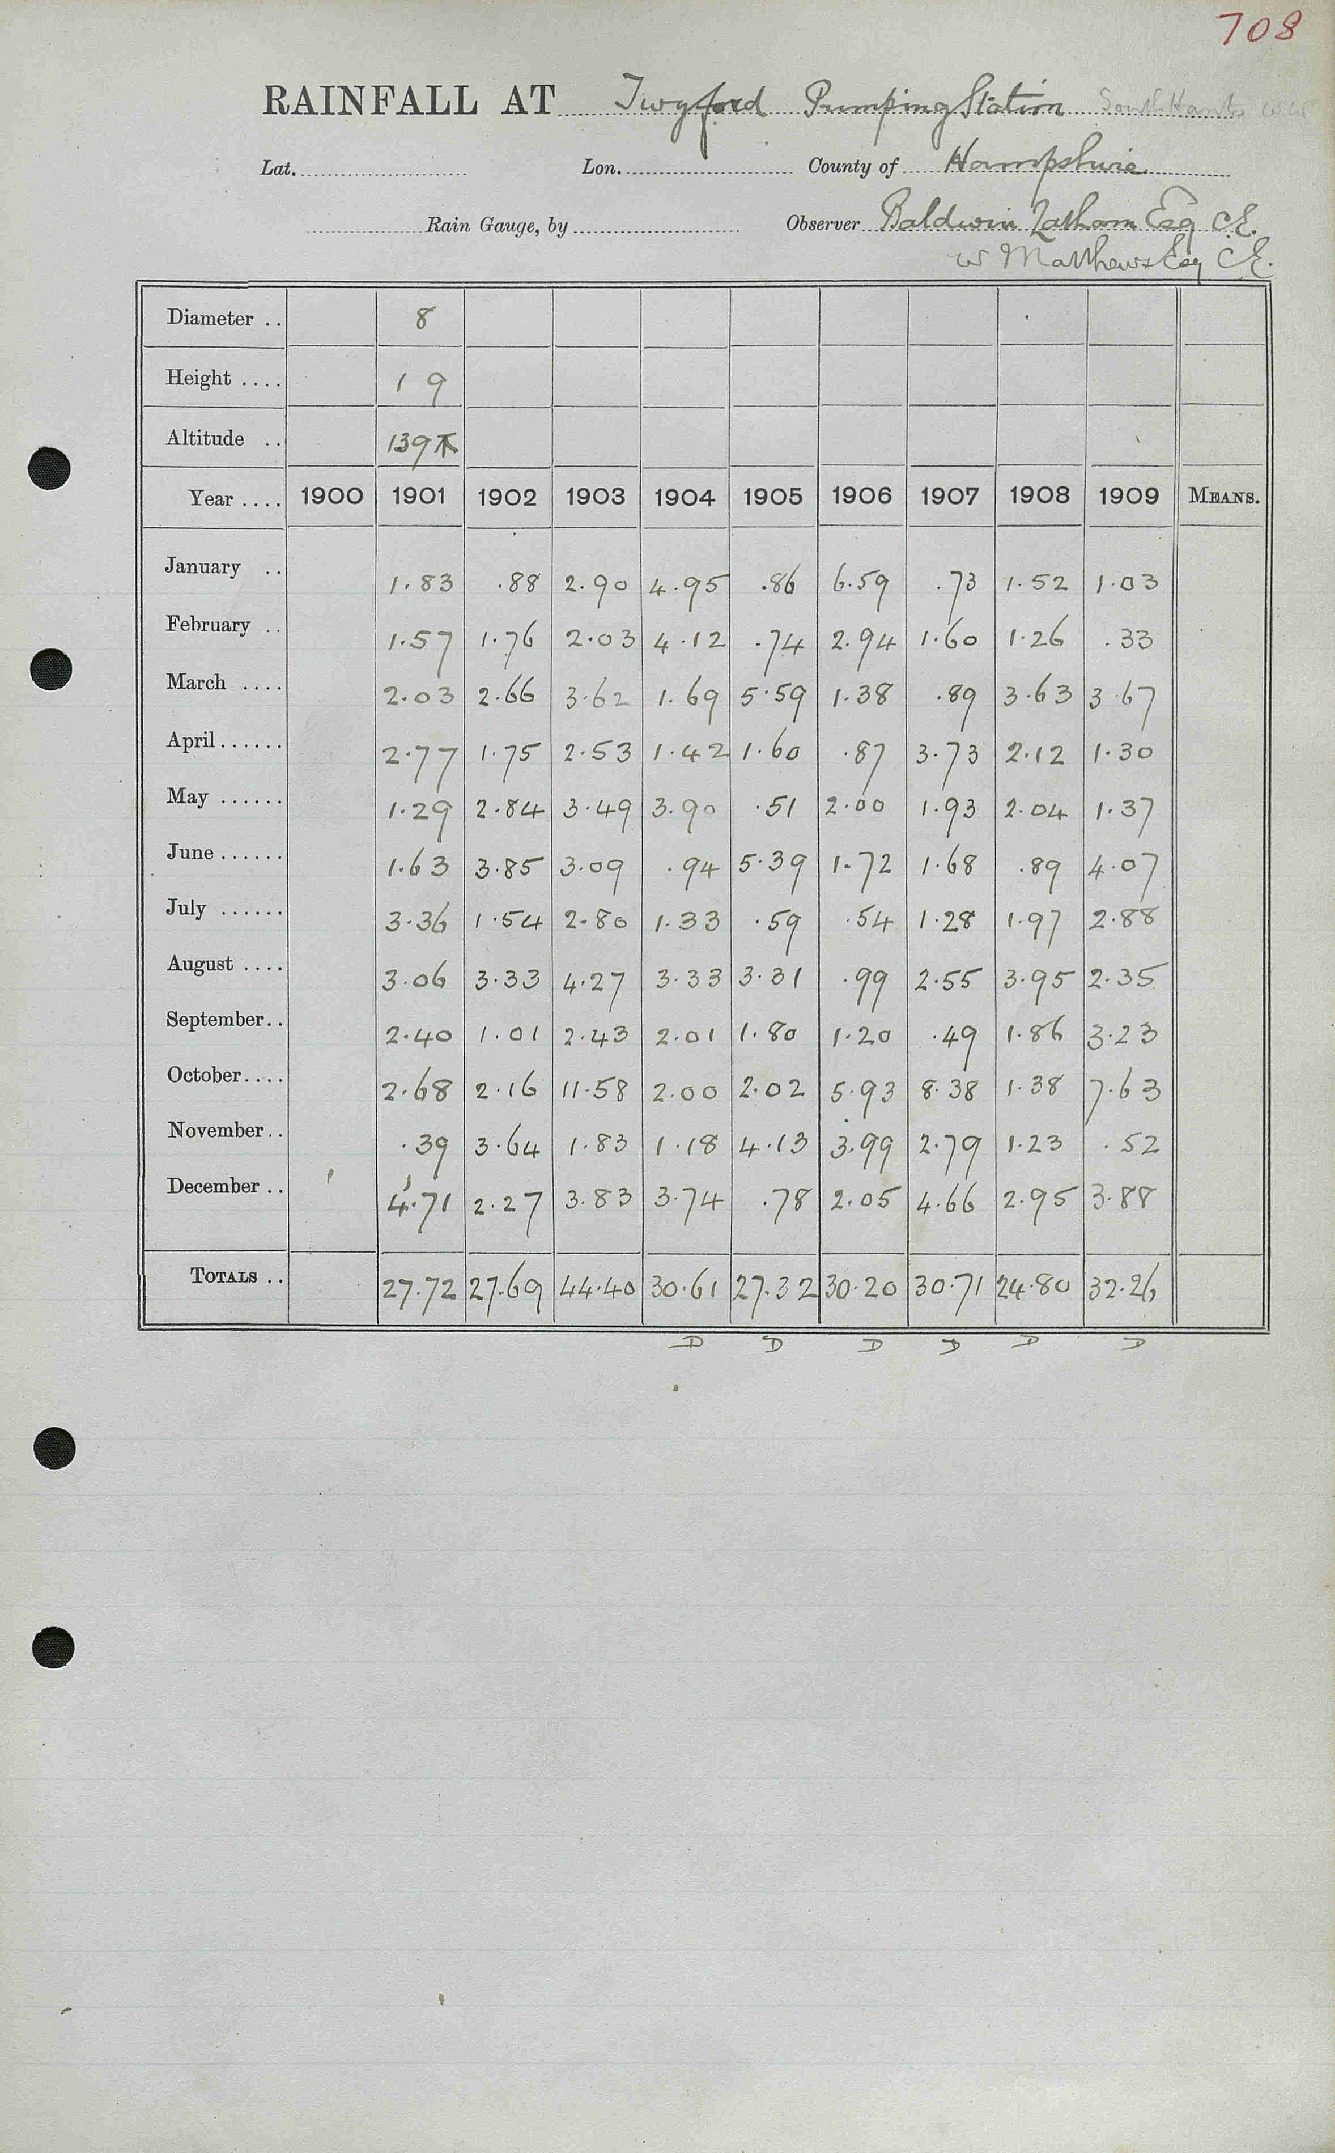 708
RAINFALL AT Twyford Pumping Station South Hants WW
Lat. Lon. County of Hampshire
Rain Gauge, by Observer Baldwin Latham Esq C.E.
W Matthews Esq C.E.
Diameter .. 8
Height .... 1 9
Altitude .. 139
Year .... 1900 1901 1902 1903 1904 1905 1906 1907 1908 1909 MEANS.
January .. 1.83 .88 2.90 4.95 .86 6.59 .73 1.52 1.03
February .. 1.57 1.76 2.03 4.12 .74 2.94 1.60 1.26 .33
March .... 2.03 2.66 3.62 1.69 5.59 1.38 .89 3.63 3.67
April...... 2.77 1.75 2.53 1.42 1.60 .87 3.73 2.12 1.30
May ...... 1.29 2.84 3.49 3.90 .51 2.00 1.93 2.04 1.37
June...... 1.63 3.85 3.09 .94 5.39 1.72 1.68 .89 4.07
July ...... 3.36 1.54 2.80 1.33 .59 .54 1.28 1.97 2.88
August .... 3.06 3.33 4.27 3.33 3.31 .99 2.55 3.95 2.35
September.. 2.40 1.01 2.43 2.01 1.80 1.20 .49 1.86 3.23
October.... 2.68 2.16 11.58 2.00 2.02 5.93 8.38 1.38 7.63
November.. .39 3.64 1.83 1.18 4.13 3.99 2.79 1.23 .52
December .. 4.71 2.27 3.83 3.74 .78 2.05 4.66 2.95 3.88
TOTALS .. 27.72 27.69 44.40 30.61 27.32 30.20 30.71 24.80 32.26
D D D D D D